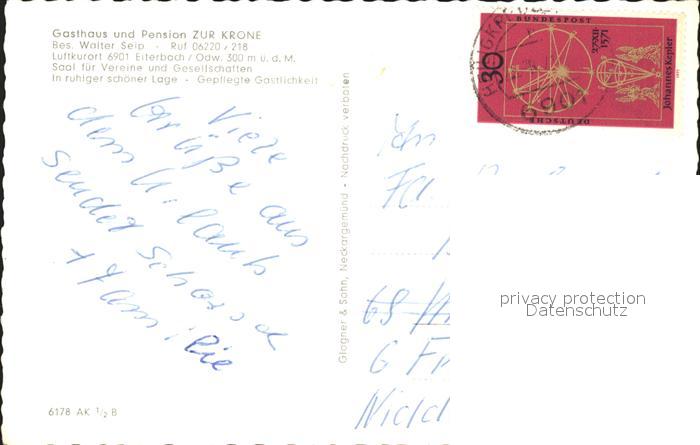 Gasthaus und Pension ZUR KRONE
Bes. Walter Seip - Ruf 06220 / 218
Luftkurort 6901 Eiterbach / Odw. 300 m ü. d. M.
Saal für Vereine und Gesellschaften
In ruhiger schöner Lage - Gepflegte Gastlichkeit
Viele
Grüße aus
dem Urlaub
sendet
+ Familie
6178 AK ½ B
Glogner & Sohn, Neckargemünd - Nachdruck verboten
DEUTSCHE
BUNDESPOST
30
27.XII.
1571
Johannes Kepler
An
Fa.
privacy protection
Datenschutz